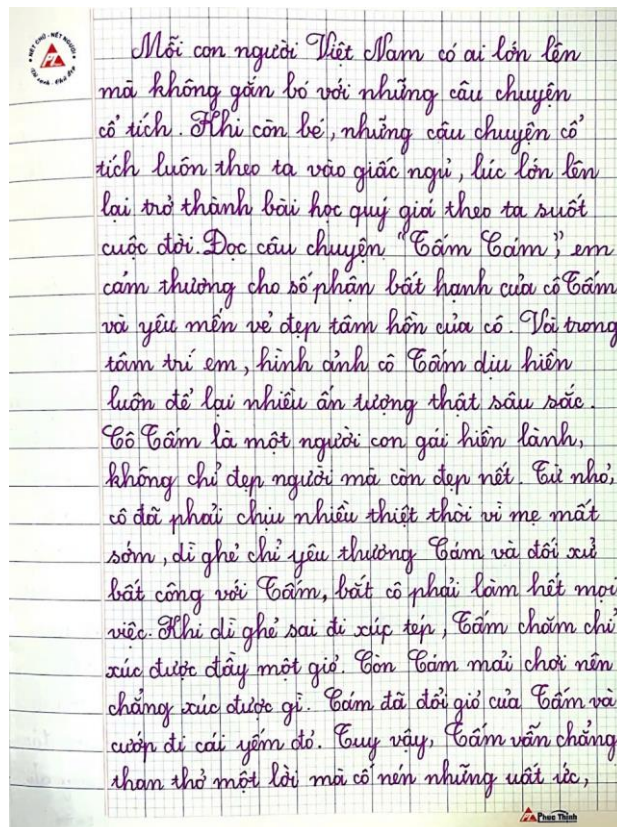 NÉT CHỮ - NẾT NGƯỜI
PL
Mỗi con người Việt Nam có ai lớn lên
mà không gắn bó với những câu chuyện
cổ tích. Khi còn bé, những câu chuyện cổ
tích luôn theo ta vào giấc ngủ, lúc lớn lên
lại trở thành bài học quý giá theo ta suốt
cuộc đời. Đọc câu chuyện "Tấm Cám", em
cảm thương cho số phận bất hạnh của cô Tấm
và yêu mến vẻ đẹp tâm hồn của cô. Và trong
tâm trí em, hình ảnh cô Tấm dịu hiền
luôn để lại nhiều ấn tượng thật sâu sắc.
Cô Tấm là một người con gái hiền lành,
không chỉ đẹp người mà còn đẹp nết. Từ nhỏ,
cô đã phải chịu nhiều thiệt thòi vì mẹ mất
sớm, dì ghẻ chỉ yêu thương Cám và đối xử
bất công với Tấm, bắt cô phải làm hết mọi
việc. Khi dì ghẻ sai đi xúc tép, Tấm chăm chỉ
xúc được đầy một giỏ. Còn Cám mải chơi nên
chẳng xúc được gì. Cám đã đổi giỏ của Tấm và
cướp đi cái yếm đỏ. Tuy vậy, Tấm vẫn chẳng
than thở một lời mà cố nén những uất ức,
Phuc Thinh